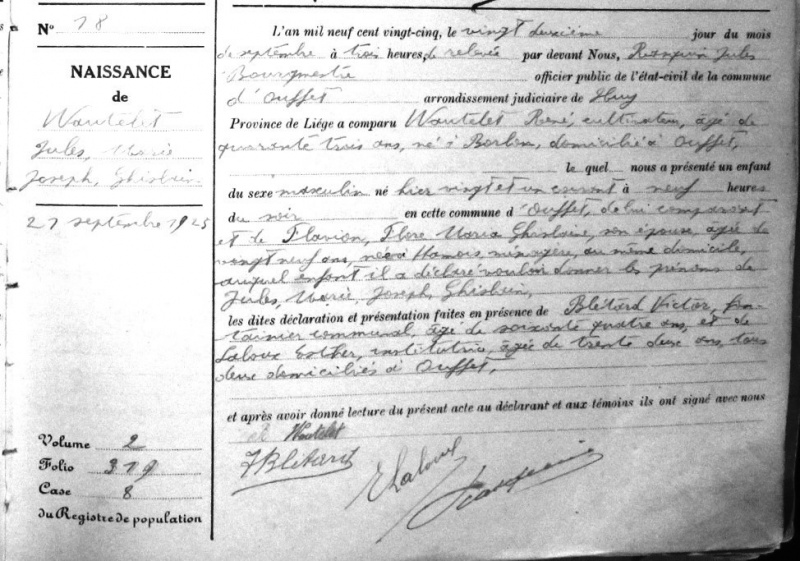 N° 18
NAISSANCE
de
Wautelet
Jules, Marie
Joseph, Ghislain
21 septembre 1925
Volume 2
Folio 319
Case 8
du Registre de population
L'an mil neuf cent vingt-cinq, le vingt deuxième jour du mois
de septembre à trois heures, de relevée par devant Nous, Jules
Bourgmestre officier public de l'état-civil de la commune
d'Ouffet arrondissement judiciaire de Huy
Province de Liége a comparu Wautelet René, cultivateur, âgé de
quarante trois ans, né à Borlon, domicilié à Ouffet,
le quel nous a présenté un enfant
du sexe masculin né hier vingt et un courant à neuf heures
du soir en cette commune d'Ouffet, de lui comparant
et de Flavion, Flore Maria Ghislaine, son épouse, âgée de
vingt neuf ans, née à Hamois ménagère, au même domicile,
auquel enfant il a déclaré vouloir donner les prénoms de
Jules, Marie, Joseph, Ghislain,
les dites déclaration et présentation faites en présence de Blétard Victor, fon-
tainier communal, âgé de soixante quatre ans, et de
Laloux Esther, institutrice, âgée de trente deux ans, tous
deux domiciliés à Ouffet,
et après avoir donné lecture du présent acte au déclarant et aux témoins ils ont signé avec nous
Wautelet
VBlétard
ELaloux